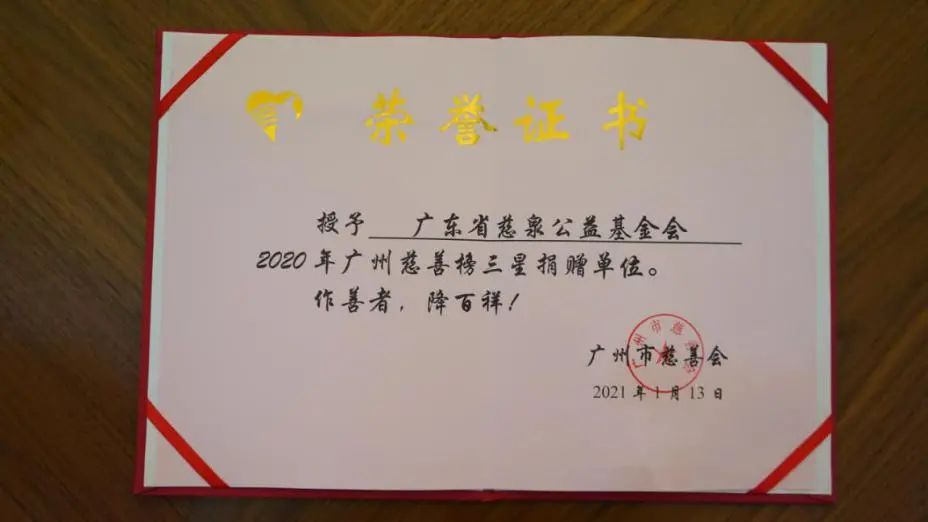 荣誉证书
授予 广东省慈泉公益基金会
2020年广州慈善榜三星捐赠单位。
作善者，降百祥！
广州市慈善会
2021年1月13日